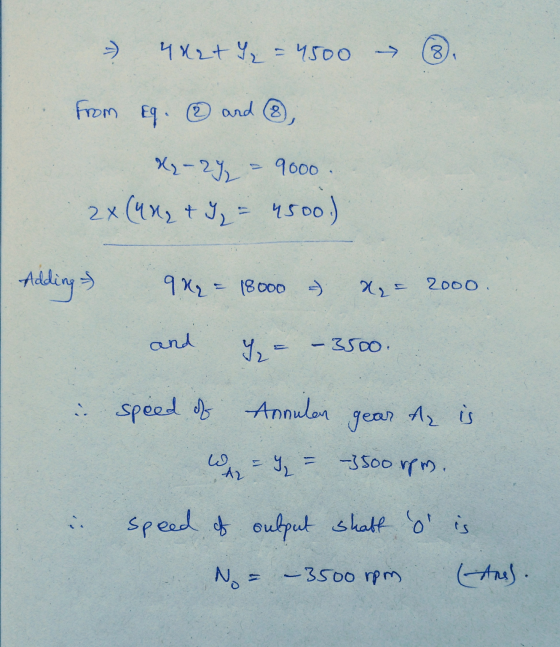 ⇒ 4x₂ + y₂ = 4500 → ⑧.
From Eq. ② and ⑧,
x₂ - 2y₂ = 9000.
2 × (4x₂ + y₂ = 4500.)
Adding ⇒ 9x₂ = 18000 ⇒ x₂ = 2000.
and y₂ = - 3500.
∴ speed of Annular gear A₂ is
ω_A₂ = y₂ = -3500 rpm.
∴ speed of output shaft 'O' is
N₀ = - 3500 rpm (Ans).